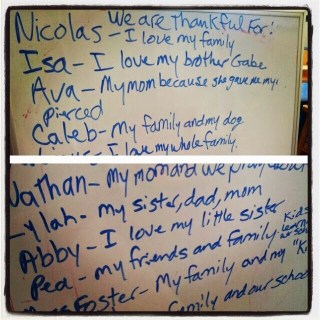 We are thankful for:
Nicolas - I love my family
Isa - I love my brother Gabe
Ava - My mom because she gave me my
pierced
Caleb - My family and my dog
I love my whole family.
Nathan - my mom and we
ylah - my sister, dad, mom
Abby - I love my little sister
my friends and family.
Foster - My family and my "Ki
family and our school